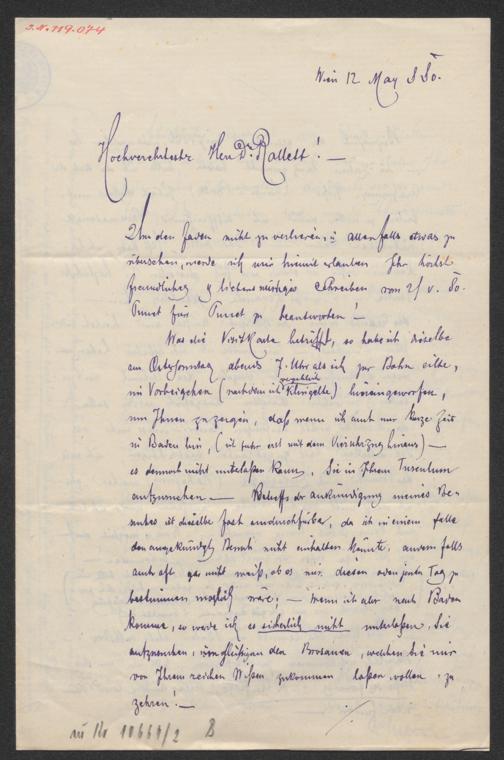 J.N. 119.074
Wien 12 May 880.
Hochverehrtester Herr Dr. Rollett! —
Um den Faden nicht zu verlieren, u allenfalls etwas zu
, werde ich mir hiemit erlauben Ihr höchst
freundliches u liebenswürdiges Schreiben vom 2/ v. 80.
Punct für Punct zu beantworten! —
Was die Visitkarte betrifft, so habe ich dieselbe
am Ostersonntag abends 7 Uhr als ich zur Bahn eilte,
im Vorbeigehen (nachdem ich vergeblich klingelte) hineingeworfen,
um Ihnen zu zeigen, daß wenn ich auch nur kurze Zeit
in Baden bin, (ich fuhr erst mit dem hinaus) —
es dennoch nicht unterlaßen kann, Sie in Ihrem Tusculum
aufzusuchen — Betreffs der Ankündigung meines Be-
suches ist dieselbe fast undurchführbar, da ich in einem Falle
den angekündigt Besuch nicht einhalten könnte, andern falls
auch oft gar nicht weiß, ob es mir diesen oder jenen Tag zu
bestimmen möglich wäre; — Wenn ich aber nach Baden
komme, so werde ich es sicherlich nicht unterlaßen, Sie
aufzusuchen, um gleichsam den Brosamen, welchen Sie mir
von Ihrem reichen Wißen zukommen laßen wollen, zu
zehren! —
zu Nr 10661/2 B